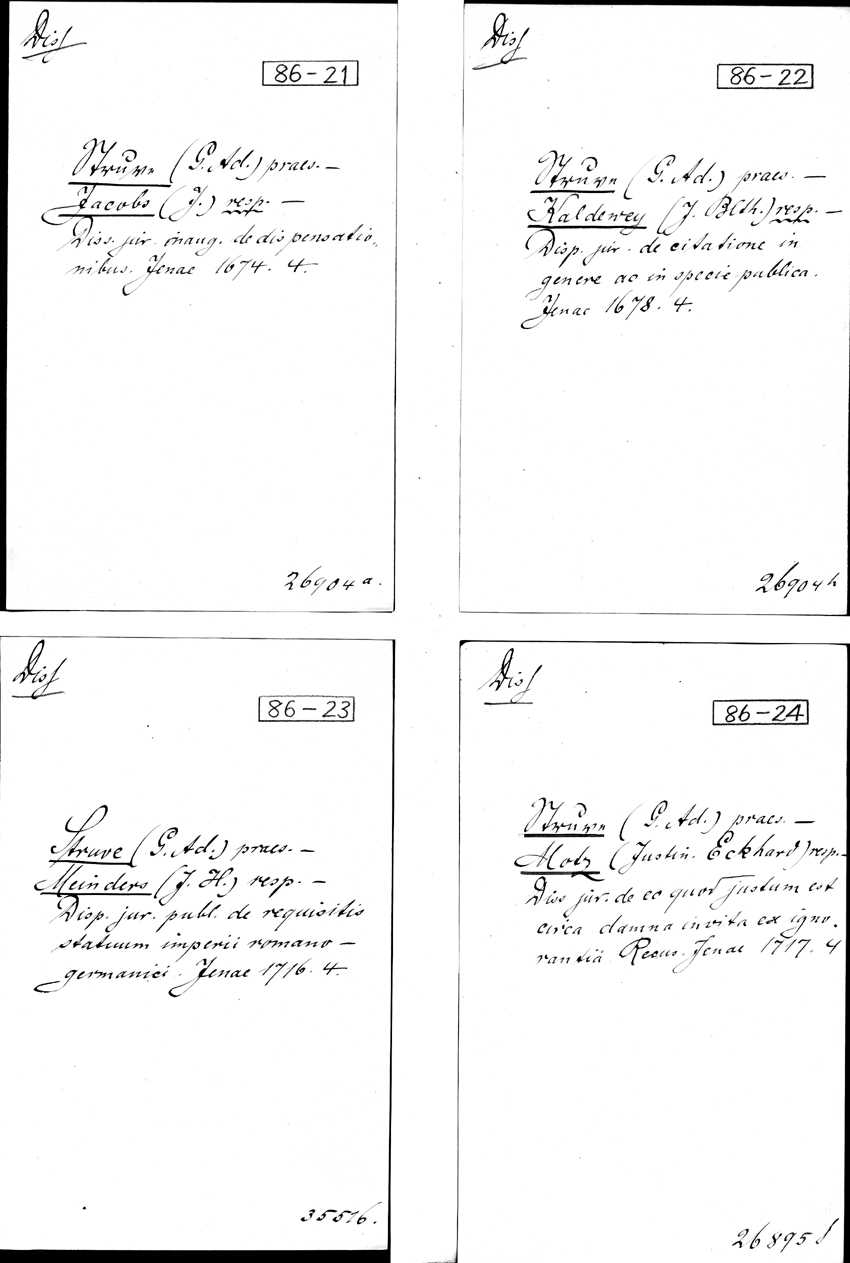 Diss
86-21
Struve (G. Ad.) praes. —
Jacobs (J.) resp. —
Diss. jur. inaug. de dispensatio-
nibus. Jenae 1674. 4.
26904 a.
Diss
86-22
Struve (G. Ad.) praes. —
Kaldewey (J. Blth.) resp. —
Disp. jur. de citatione in
genere ac in specie publica.
Jenae 1678. 4.
26904 h
Diss
86-23
Struve (G. Ad.) praes. —
Meinders (J. H.) resp. —
Disp. jur. publ. de requisitis
statuum imperii romano —
germanici. Jenae 1716. 4.
35516.
Diss
86-24
Struve (G. Ad.) praes. —
Motz (Justin. Eckhard) resp. —
Diss jur. de eo quod justum est
circa damna invita ex igno-
rantiâ Recus. Jenae 1717. 4
26895